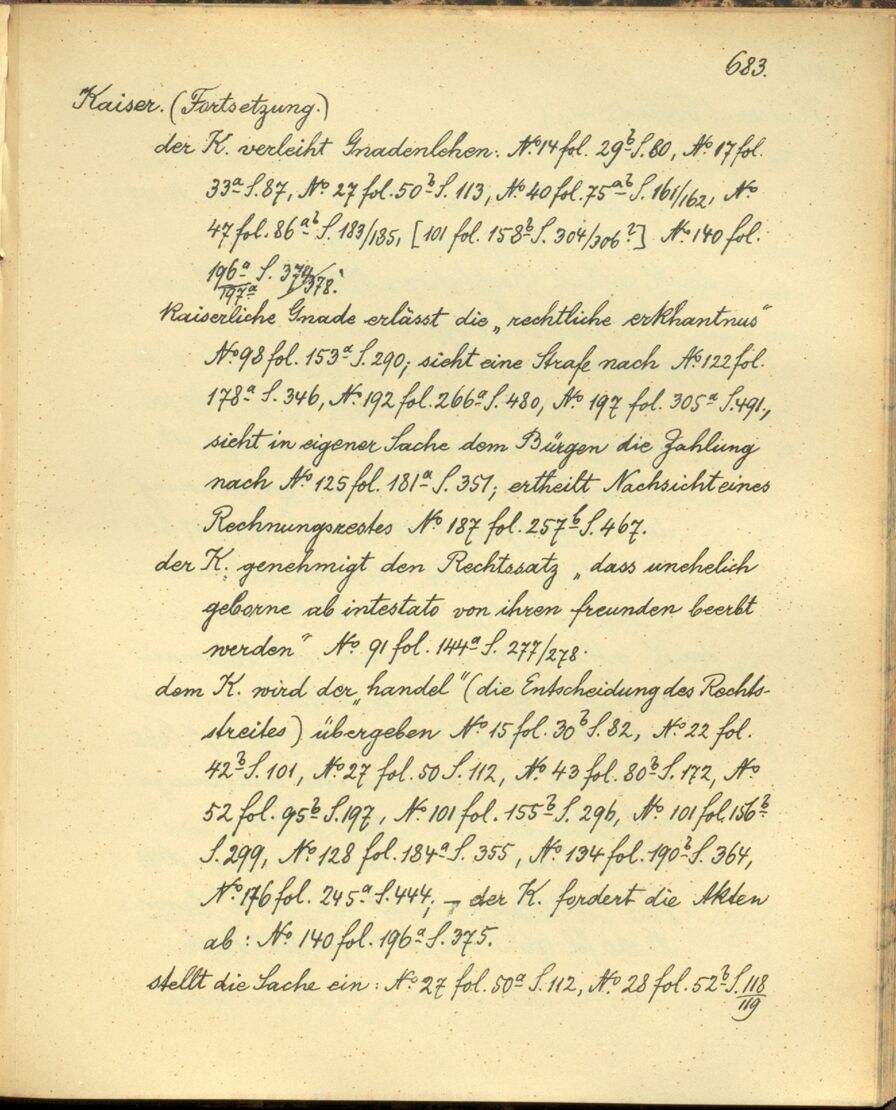 683.
Kaiser. (Fortsetzung.)
der K. verleiht Gnadenlehen: No 14 fol. 29b S. 80, No 17 fol.
33a S. 87, No 27 fol. 50b S. 113, No 40 fol. 75ab S. 161/162, No
47 fol. 86ab S. 183/185, [101 fol. 158b S. 304/306 ?] No 140 fol.
196a S. 374/378.
197a
Kaiserliche Gnade erlässt die „rechtliche erkhantnus"
No 98 fol. 153a S. 290; sieht eine Strafe nach No 122 fol.
178a S. 346, No 192 fol. 266a S. 480, No 197 fol. 305a S. 491.,
sieht in eigener Sache dem Bürgen die Zahlung
nach No 125 fol. 181a S. 351; ertheilt Nachsicht eines
Rechnungsrestes No 187 fol. 257b S. 467.
der K. genehmigt den Rechtssatz „dass unehelich
geborne ab intestato von ihren freunden beerbt
werden" No 91 fol. 144a S. 277/278.
dem K. wird der „handel" (die Entscheidung des Rechts-
streites) übergeben No 15 fol. 30b S. 82, No 22 fol.
42b S. 101, No 27 fol. 50 S. 112, No 43 fol. 80b S. 172, No
52 fol. 95b S. 197, No 101 fol. 155b S. 296, No 101 fol. 156b
S. 299, No 128 fol. 184a S. 355, No 134 fol. 190b S. 364,
No 176 fol. 245a S. 444; – der K. fordert die Akten
ab: No 140 fol. 196a S. 375.
stellt die Sache ein: No 27 fol. 50a S. 112, No 28 fol. 52b S. 118
119